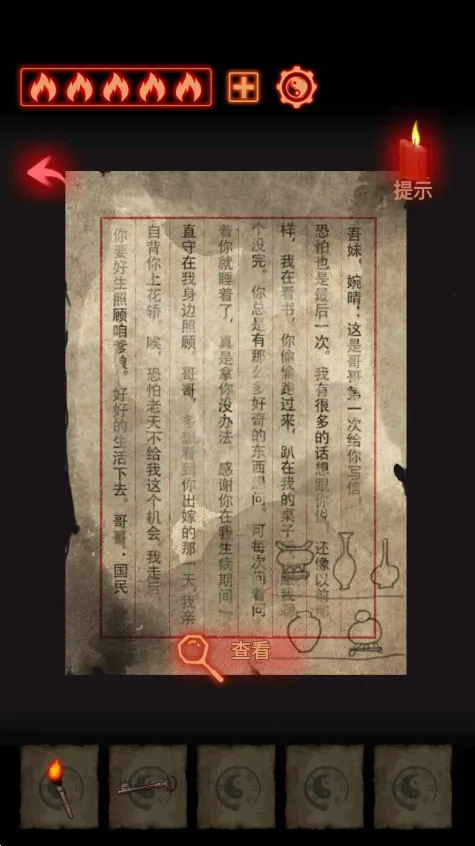 提示
吾妹,婉晴:这是哥哥第一次给你写信,
恐怕也是最后一次。我有很多的话想跟你说,还像以前那
样,我在看书,你偷偷跑过来,趴在我的桌子跟我聊
个没完。你总是有那么多好奇的东西想问。可每次问着问
着你就睡着了,真是拿你没办法。感谢你在我生病期间一
直守在我身边照顾 哥哥,多想看到你出嫁的那一天,我亲
自背你上花轿。唉,恐怕老天不给我这个机会。我走后,
你要好生照顾咱爹娘。好好的生活下去。哥哥:国民
查看